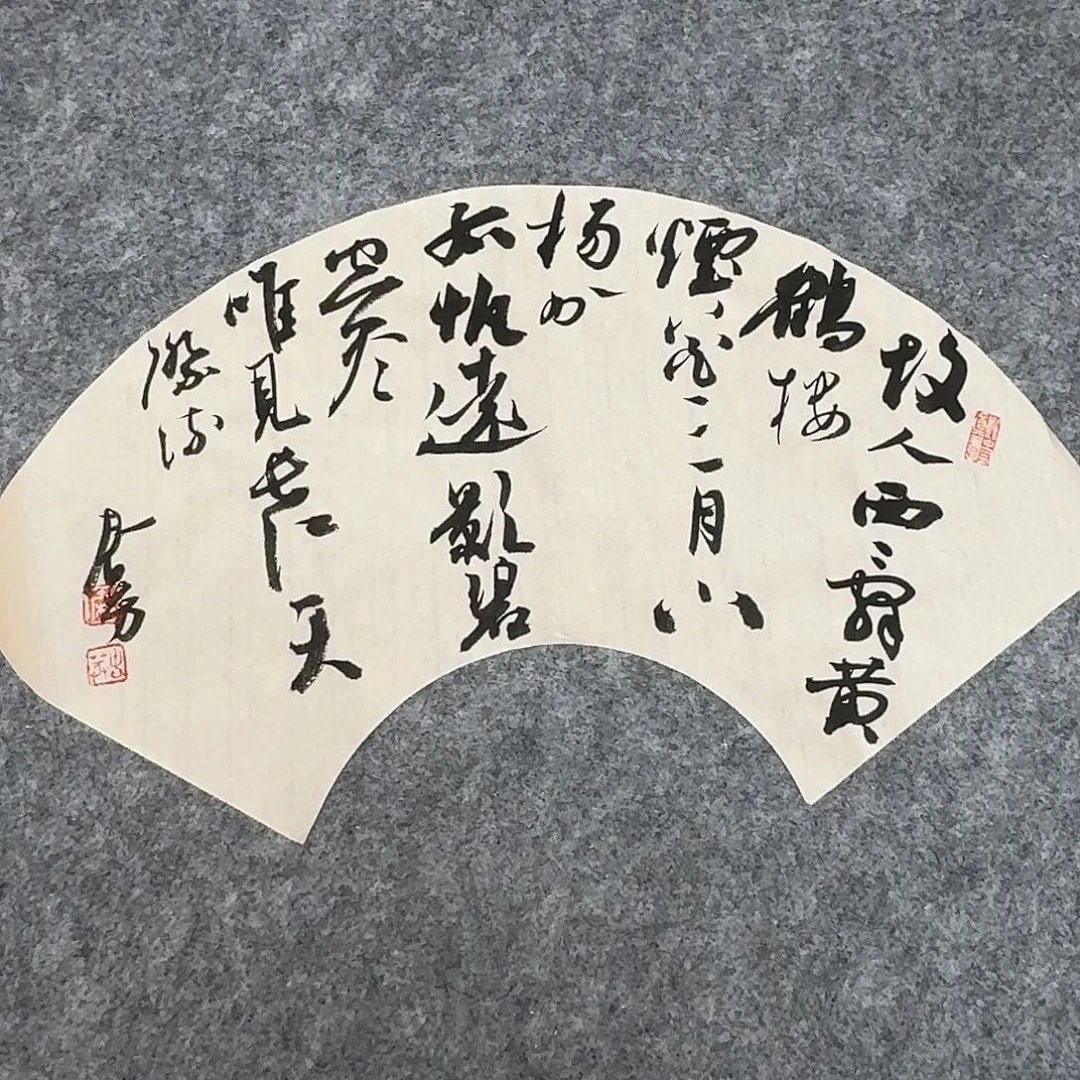 故人西辭黄
鶴楼
煙花三月下
揚州
孤帆遠影碧
空尽
唯見長江天
際流